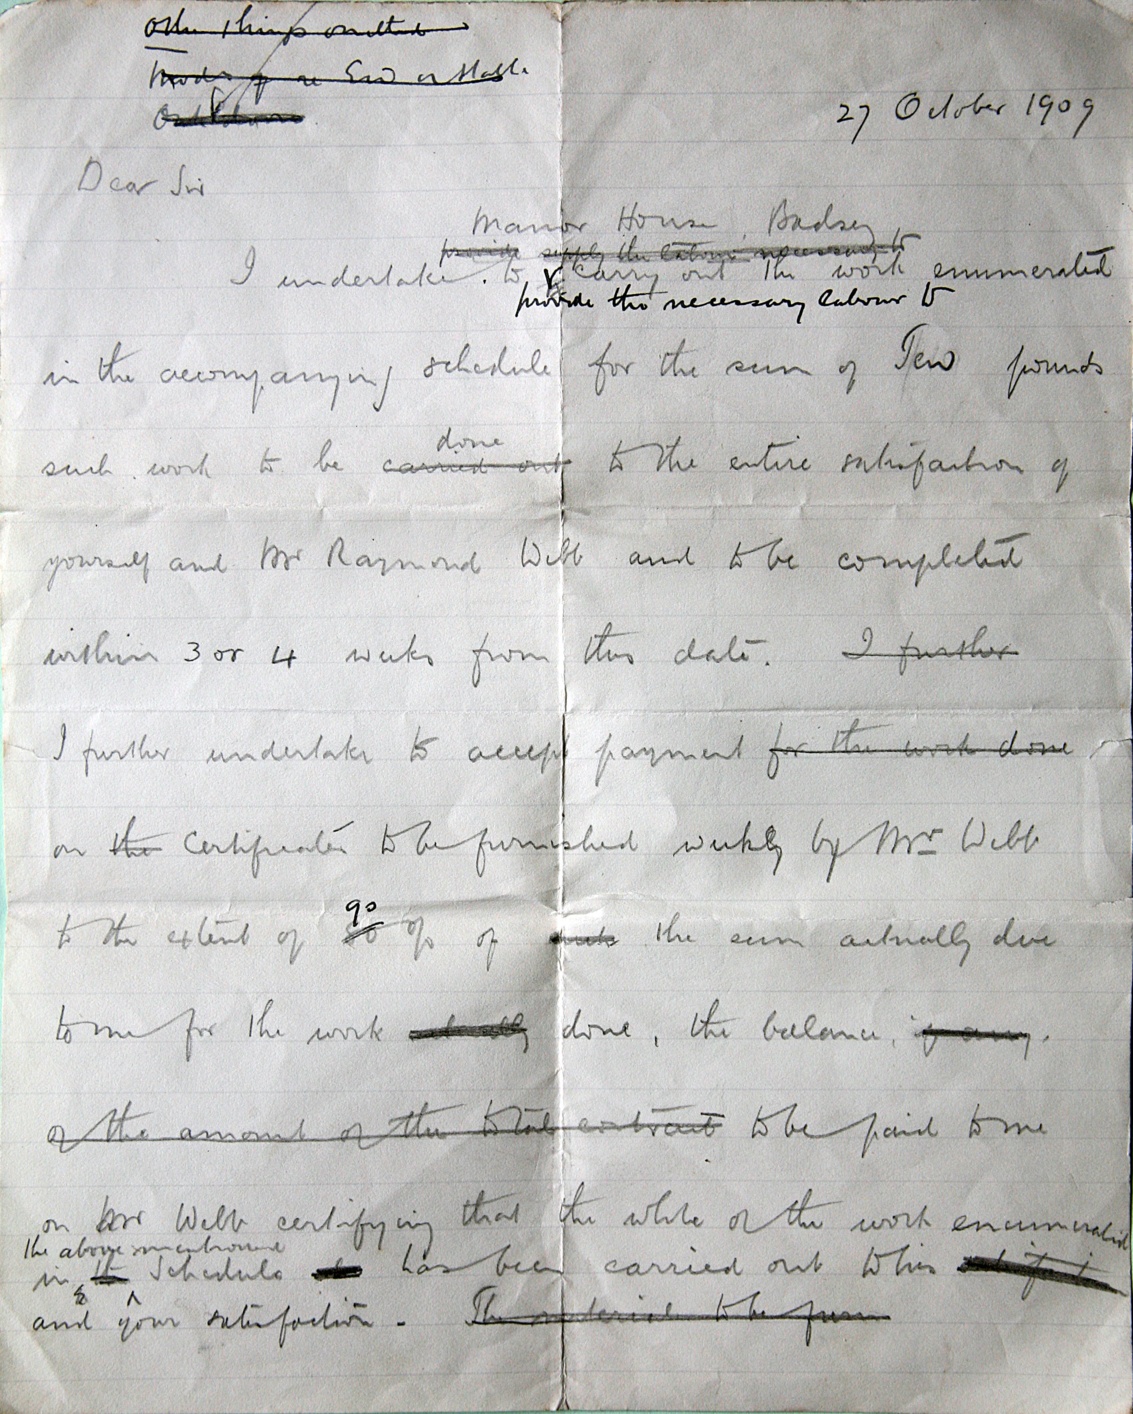 Other things omitted
Mode of re End or Stable
27 October 1909
Dear Sir
Manor House, Badsey
provide supply the labour necessary to
I undertake to carry out the work enumerated
provide the necessary labour to
in the accompanying schedule for the sum of Ten pounds
done
such work to be carried out to the entire satisfaction of
yourself and Mr Raymond Webb and to be completed
within 3 or 4 weeks from this date. I further
I further undertake to accept payment for the work done
on the certificates to be furnished weekly by Mr Webb
90
to the extent of 80 % of the sum actually due
to me for the work actually done, the balance, if any.
of the amount of the total contract to be paid to me
on Mr Webb certifying that the whole of the work enumerated
the above mentioned
in the Schedule has been carried out to his satisfact
&
and your satisfaction. The material to be furn